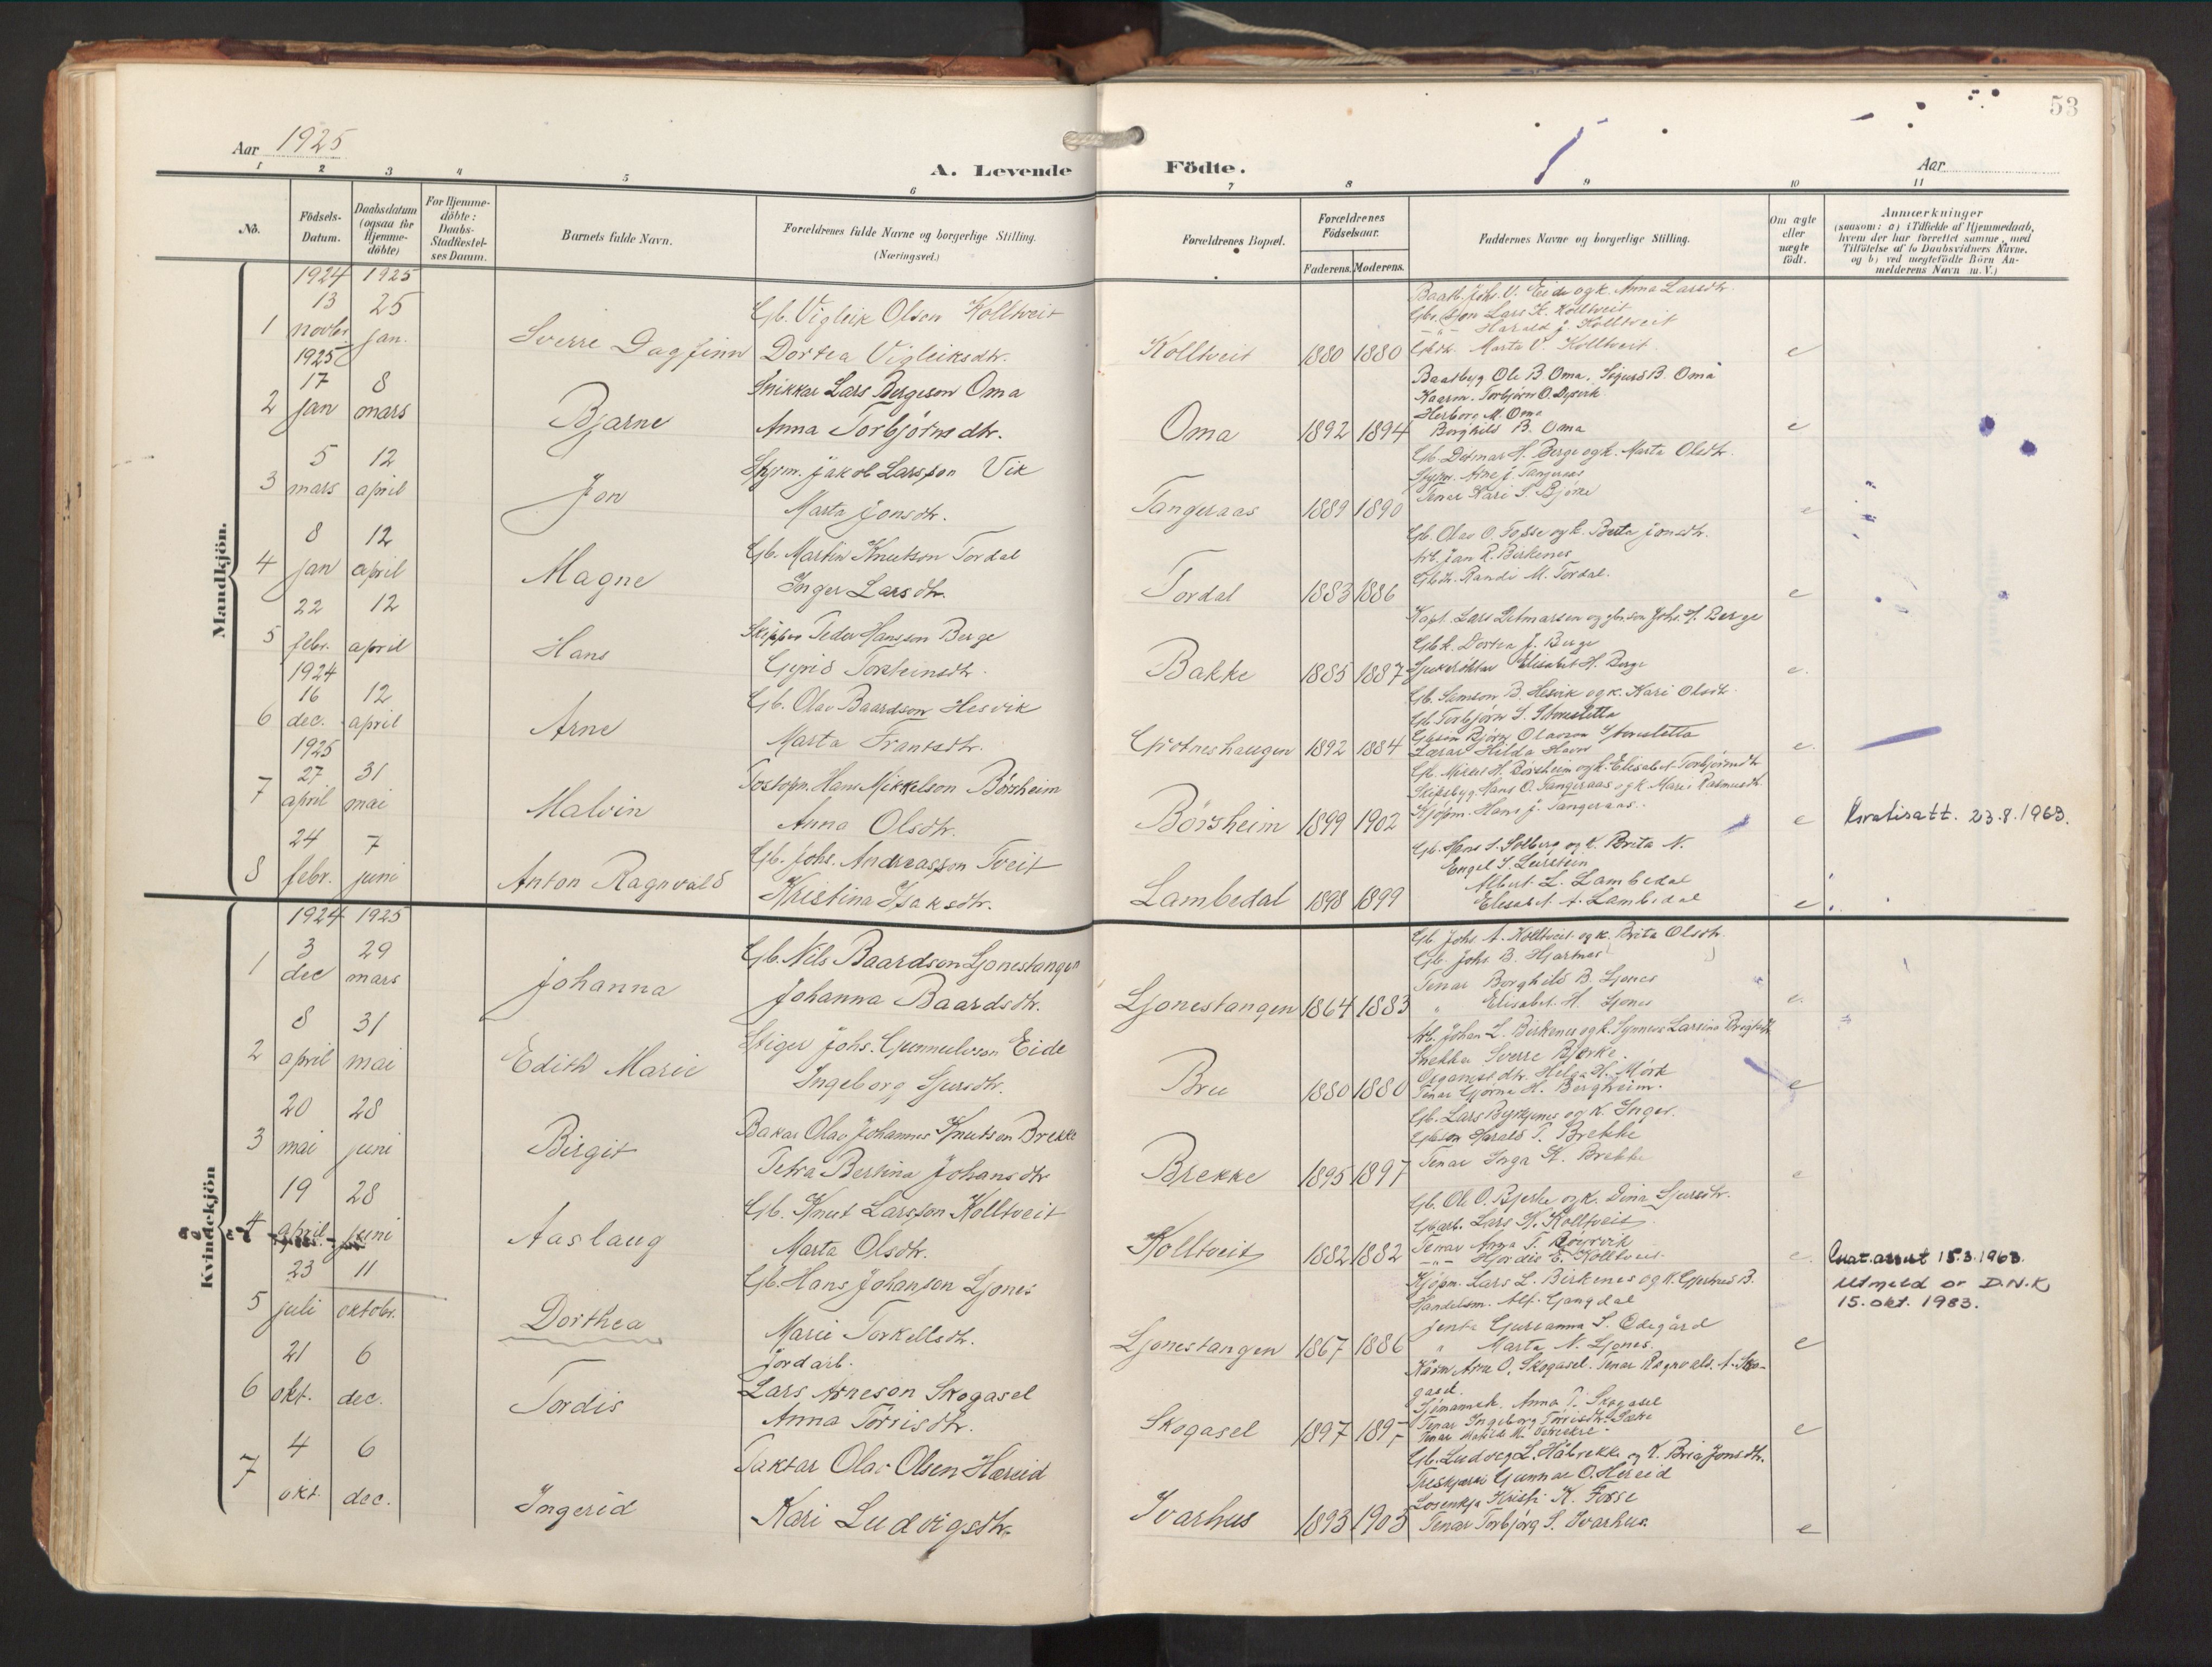 53
Aar 1925
A. Levende Födte.
Aar
1 2 3 4 5 6 7 8 9 10 11
No.
Födsels-Datum.
Daabsdatum (ogsaa for Hjemme-döbte)
For Hjemme-döbte: Daabs-Stadfæstel-ses Datum.
Barnets fulde Navn.
Forældrenes fulde Navne og borgerlige Stilling.
(Næringsvei.)
Forældrenes Bopæl.
Forældrenes Födselsaar.
Faderens. Moderens.
Faddernes Navne og borgerlige Stilling.
Om ægte eller uægte födt.
Anmærkninger
(saasom: a) i Tilfælde af Hjemmedaab, hvem der har forrettet samme, med Tilföielse af to Daabsvidners Navne. og b) ved uægtefödte Börn An-melderens Navn m. V.)
Mandkjön.
1924 1925
1 13 novbr. 25 jan. Sverre Dagfinn
Gb. Vigleik Olson Kolltveit
Dortea Vigleiksdtr.
Kolltveit 1880 1880
Baatb. Johs. V. Eide og k. Anna Larsdtr.
Gbr. søn Lars K. Kolltveit
-"- Harald J. Kolltveit
Marta V. Kolltveit
e
1925
2 17 jan 8 mars Bjarne
Snikkar Lars Bergeson Oma
Anna Torbjørnsdtr.
Oma 1892 1894
Baatbyg Ole B. Oma, Sigurd B. Oma
Kaarm. Torbjørn O. Dysvik
Herborg M. Oma
Borghild B. Oma
e
3 5 mars 12 april Jon
Styrm. Jakob Larsson Vik
Marta Jonsdtr.
Tangeraas 1889 1890
Gb. Detmar H. Berge og k. Marta Olsdtr.
Styrm. Arne J. Tangeraas
Tenar Kari S. Bjørke
e
4 8 jan 12 april Magne
Gb. Martin Knutson Tordal
Inger Larsdtr.
Tordal 1883 1886
Gb. Olav O. Fosse og k. Berta Jonsdtr.
Arb. Jan R. Birkenes
Gbdr. Randi M. Tordal.
e
5 22 febr. 12 april Hans
Skipper Peder Hansson Berge
Gyrid Torsteinsdtr.
Bakke 1885 1887
Kapt. Lars Detmarsen og gbr.son Johs. H. Berge
Gbk. Dortea J. Berge
Sjukesøster Elisabet H. Berge
e.
1924
6 16 dec. 12 april Arne
Gb. Olav Baardson Hesvik
Marta Frantsdtr.
Grotneshaugen 1892 1884
Gb. Samson B. Hesvik og k. Kari Olsdtr.
Gb. Torbjørn S. Steinsletta
Gbson Bjørn Olavson Steinsletta
Lærar Hilda Havn
e.
1925
7 27 april 31 mai Malvin
Postopn. Hans Mikkelson Børsheim
Anna Olsdtr.
Børsheim 1899 1902
Gb. Mikkel H. Børsheim og k. Elisabet Torbjørnsdtr.
Skipsbyg. Hans O. Tangeraas og k. Mari Rasmusdtr.
Kjøpm. Hans J. Tangeraas.
e
23.8.1963.
8 24 febr. 7 juni Anton Ragnvald
Gb. Johs. Andreasson Tveit
Kristina Isaksdtr.
Lambedal 1898 1899
Gb. Hans S. Solberg og k. Brita N.
Engel S. Leirstein
Albert L. Lambedal
Elisabet A. Lambedal
e
Kvindekjön
1924 1925
1 3 dec 29 mars Johanna
Gb. Nils Baardson Ljonestangen
Johanna Baardsdtr.
Ljonestangen 1864 1883
Gb. Johs. A. Kolltveit og k. Brita Olsdtr.
Gb. Johs B. Hjartnes
Tenar Borghild B. Ljones
" Elisabet H. Ljones
e.
2 8 april 31 mai Edith Marie
Stiger Johs. Gunnulvson Eide
Ingeborg Sjursdtr.
Bru 1880 1880
Arb. Johan L. Birkenes og k. Synneva Larsina
Snekkar Sverre Bjørke.
Organist dtr. Helga H. Mørk
Tenar Gjørna H. Bergheim.
e
3 20 mai 28 juni Birgit
Bakar Olav Johannes Knutson Brekke
Petra Bertina Johansdtr
Brekke 1895 1897
Gb. Lars Byrkjenes og k. Inger.
Gbson Harald P. Brekke
Tenar Inga K. Brekke
e
4 19 april 28 juni Aaslaug
Gb. Knut Larsson Kolltveit
Marta Olsdtr.
Kolltveit 1882 1882
Gb. Ole O. Bjerke og k. Dina Sjursdtr.
Gbarb. Lars K. Kolltveit
Tenar Anna T. Røyrvik
-"- Hjordis E. Kolltveit
e.
15.3.1963.
5 23 juli 11 oktobr. Dorthea
Gb. Hans Johanson Ljones
Marie Torkellsdtr.
Ljonestangen 1867 1886
Kjøpm. Lars L. Birkenes og k. Gjertrud B.
Handelsm. Alf. Gangdal
Jenta Gurianna S. Ødegård
" Marta N. Ljones.
e
Utmeld or D.N.K
15. okt. 1983.
6 21 okt. 6 dec. Tordis
Jordarb.
Lars Arneson Skogasel
Anna Tørrisdtr.
Skogasel 1897 1897
Kårm Arne O. Skogasel. Tenar Ragnvald. A. Sko-
gasel.
Sjømannsk. Anna T. Skogasel
Tenar Ingeborg Tørrisdtr.
Tenar Matilde M.
e
7 4 okt. 6 dec. Ingerid
Taktar Olav Olsen Hæreid
Kari Ludvigsdtr.
Ivarhus 1893 1903
Gb. Ludvig L. Håbrekke og k. Brita Jonsdtr.
Treskjærar Gunnar O. Hereid
Losenkja Kristi K. Fosse
Tenar Torbjørg S. Ivarhus.
e